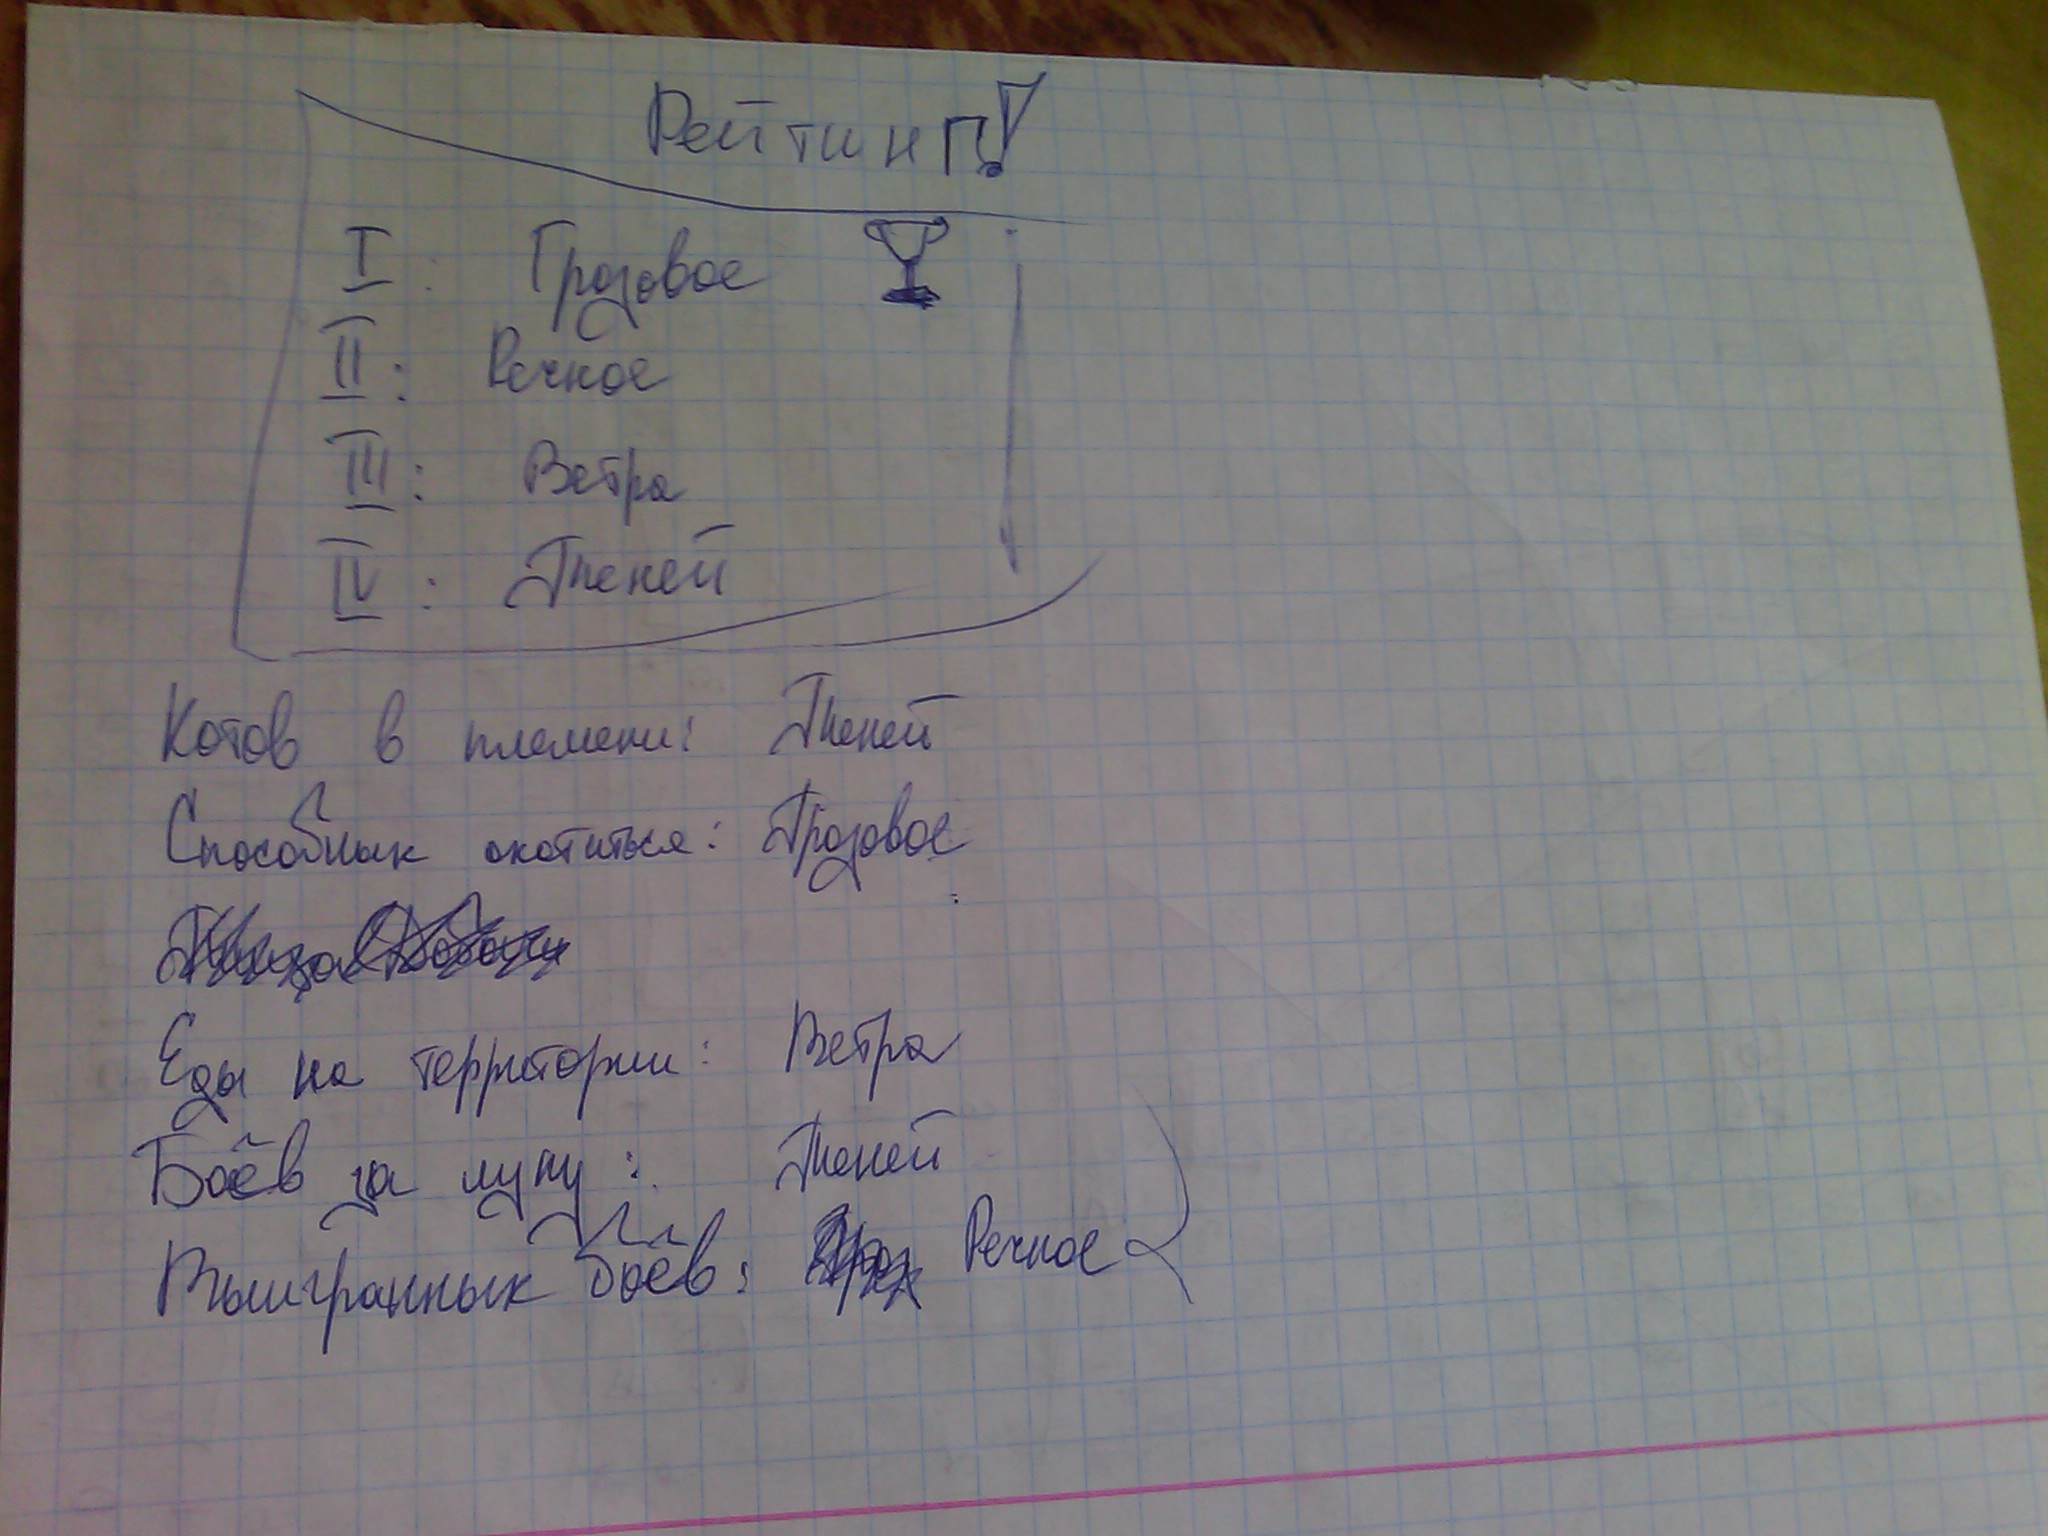 Рейтинг!
I: Грозовое
II: Речное
III: Ветра
IV: Теней
Котов в племени: Теней
Способных охотиться: Грозовое
Еды на территории: Ветра
Боёв за луну: Теней
Выигранных боёв: Речное